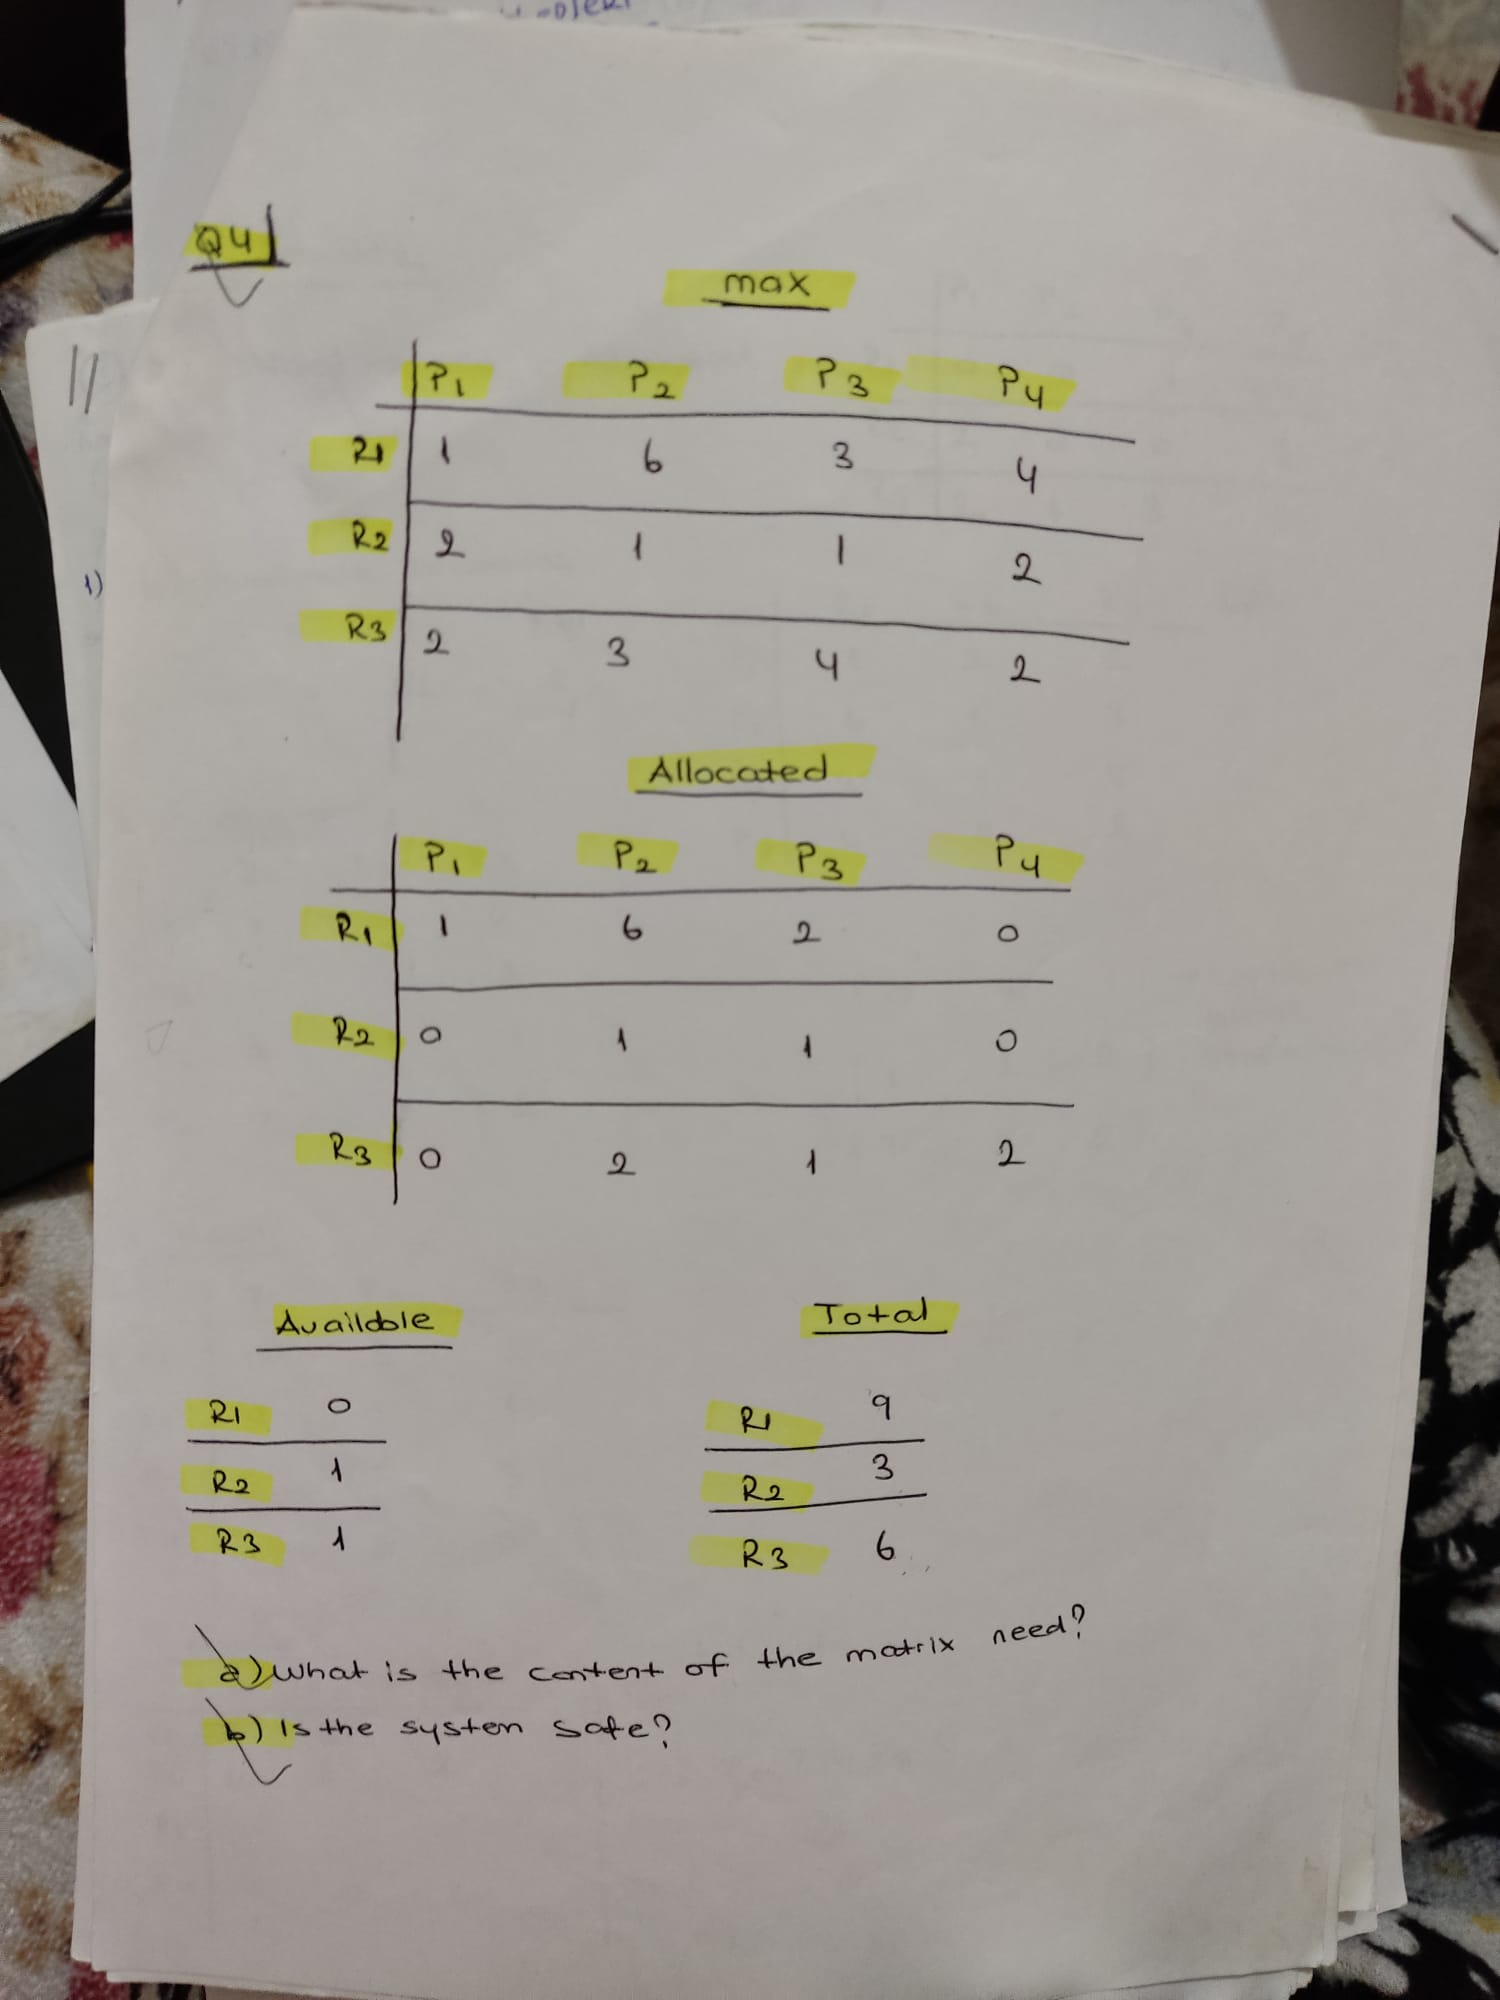 Q4
max
P1 P2 P3 P4
R1 1 6 3 4
R2 2 1 1 2
R3 2 3 4 2
Allocated
P1 P2 P3 P4
R1 1 6 2 0
R2 0 1 1 0
R3 0 2 1 2
Available Total
R1 0 R1 9
R2 1 R2 3
R3 1 R3 6
a) What is the content of the matrix need?
b) Is the system safe?
1)